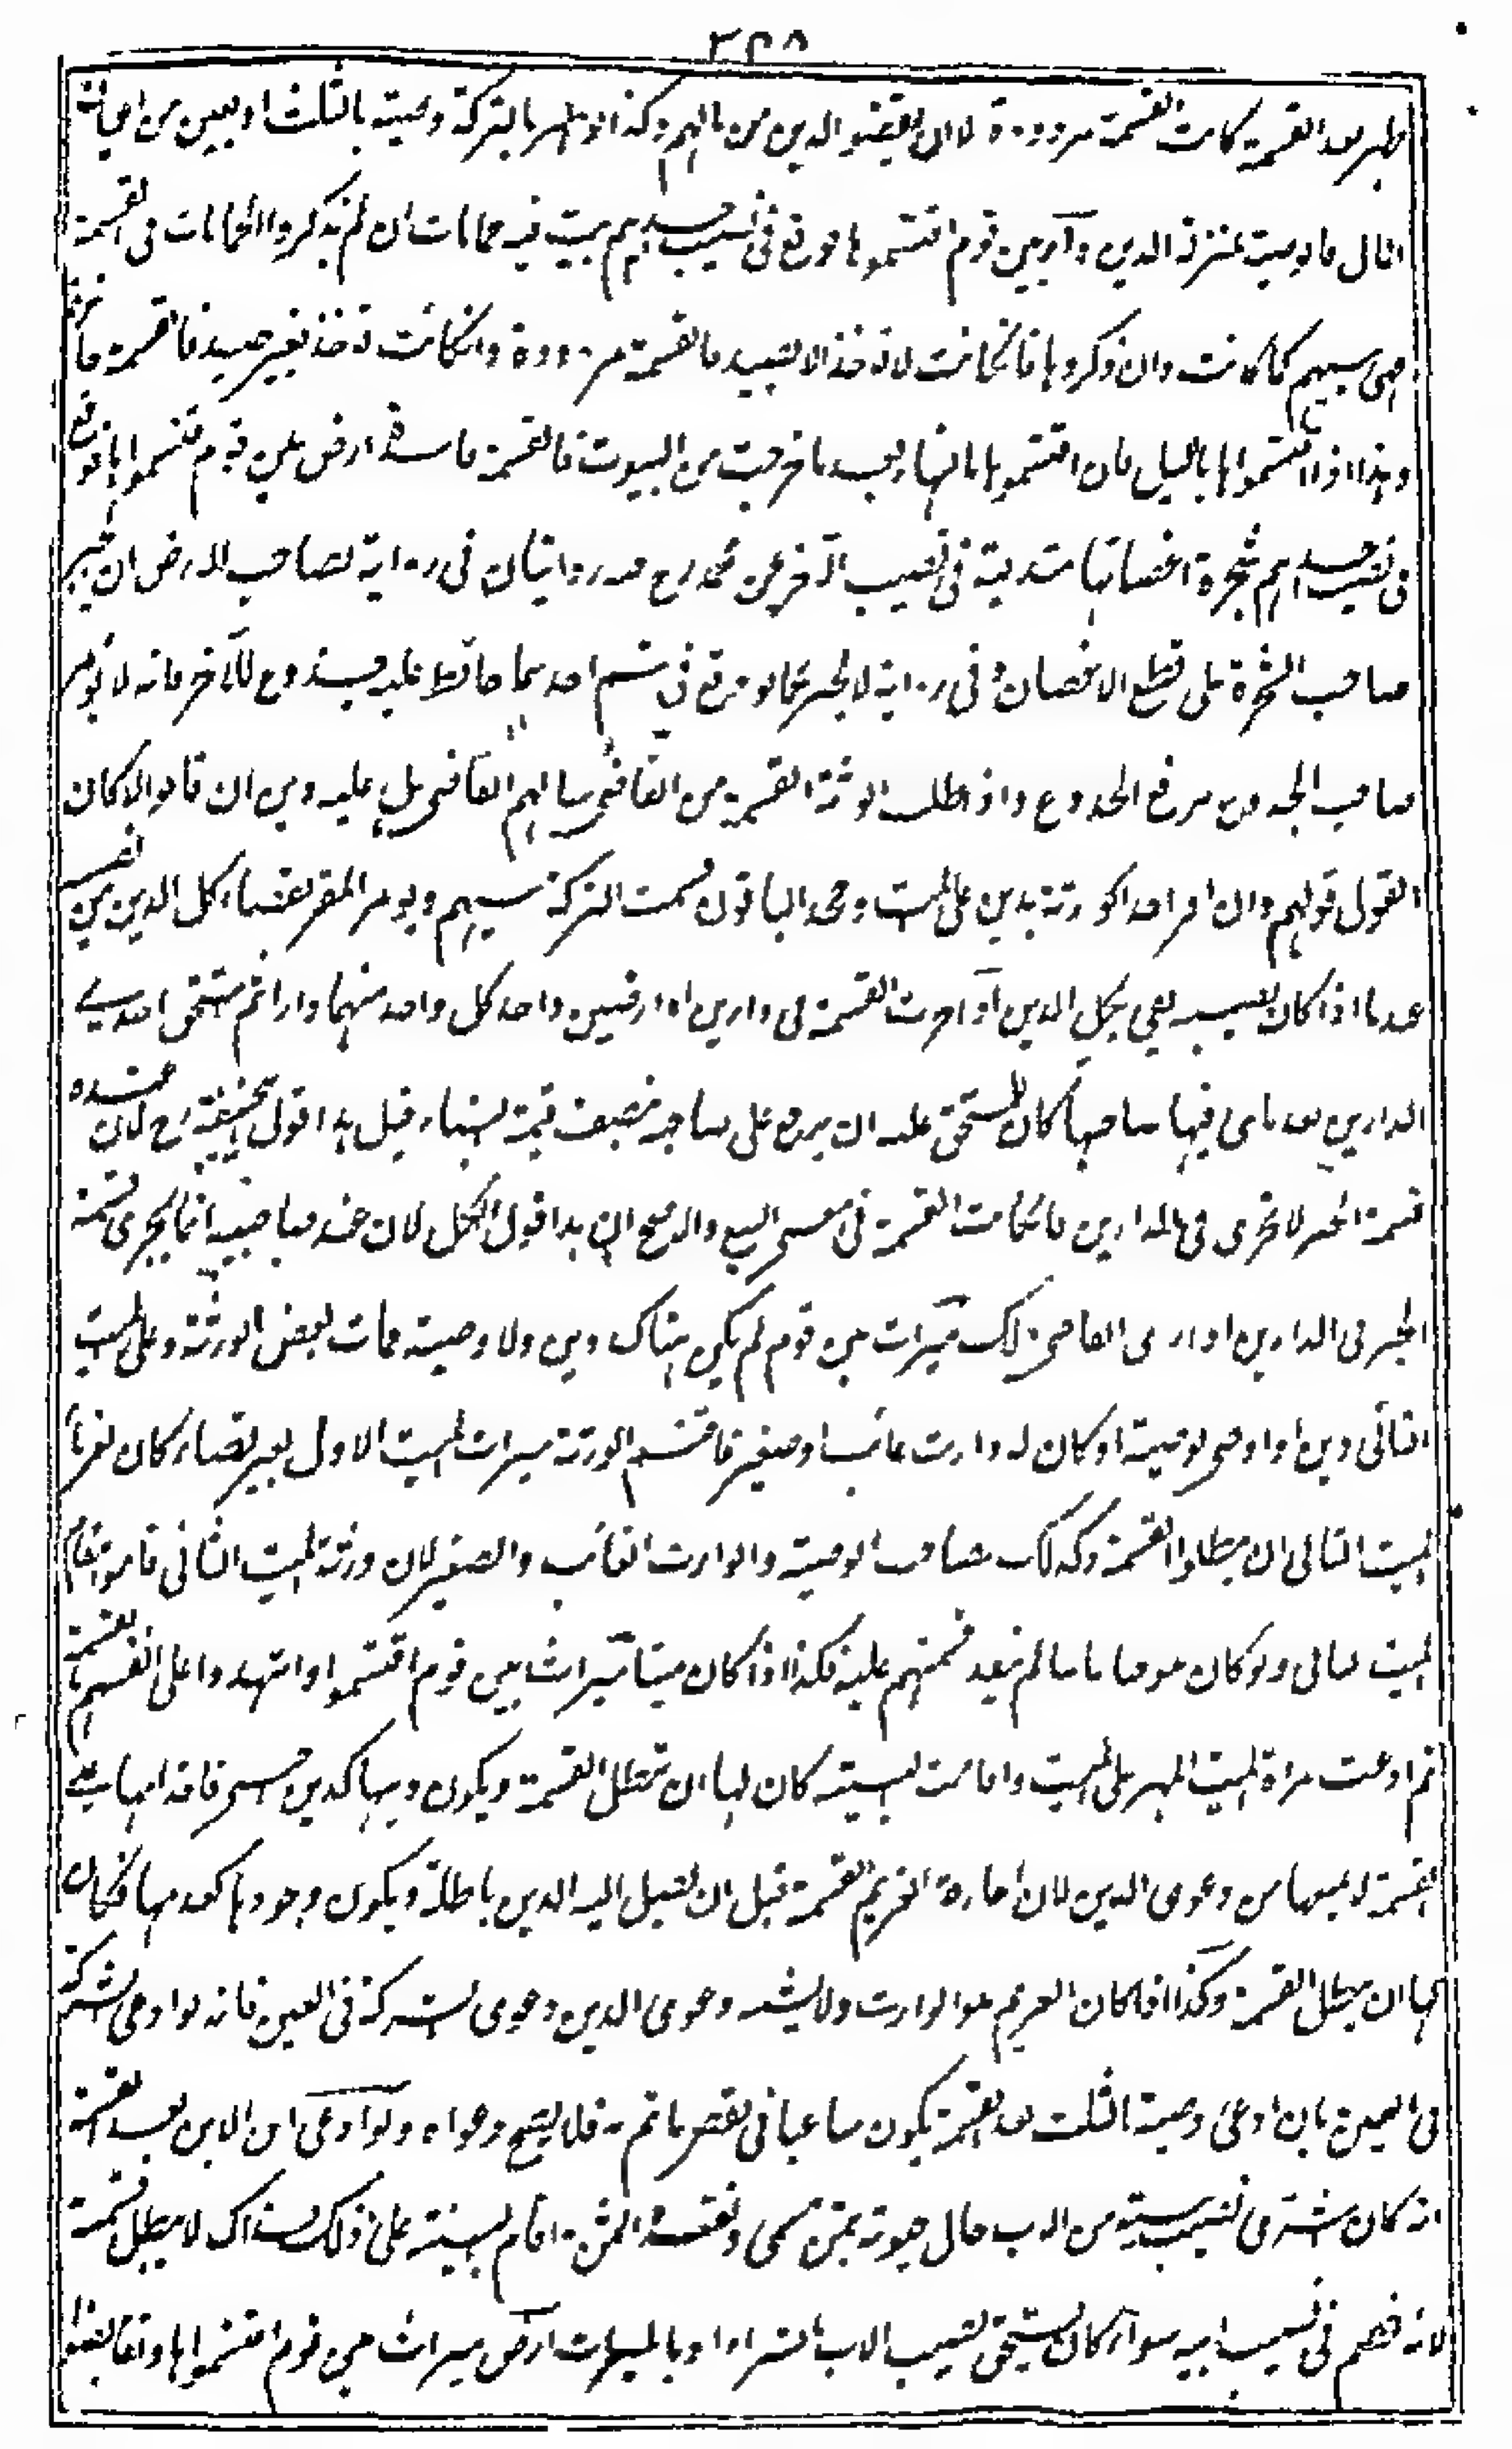 ٣٣٨
ظهر بعد القسمة كانت القسمة مردودة لا ان يقضوا الدين من مالهم وكذا لو ظهر بالتركة وصية بالثلث او بعين من اعيان
المال فالوصية بمنزلة الدين دار بين قوم اقتسموها فوقع فى نصيب احدهم بيت فيه حمامات ان لم يذكروا الحمامات فى القسمة
فهى بينهم كما كانت وان ذكروها فان كانت لا تؤخذ الا بصيد فالقسمة مردودة وان كانت تؤخذ بغير صيد فالقسمة جائزة
وهذا اذا اقتسموها بالليل فان اقتسموها بالنهار بعد ما خرجت من البيوت فالقسمة فاسدة ارض بين قوم قسموها فوقع
فى نصيب احدهم شجرة اغصانها متدلية فى نصيب الآخر عن محمد رح فيه روايتان فى رواية لصاحب الارض ان يجبر
صاحب الشجرة على قطع الاغصان وفى رواية لا يجبر كما لو وقع فى قسم احدهما حائط عليه جذوع للآخر فانه لا يؤمر
صاحب الجذوع برفع الجذوع واذا طلب الورثة القسمة من القاضى سالهم القاضى هل عليه دين ان قالوا لا كان
القول قولهم وان اقر احد الورثة بدين على الميت وجحد الباقون قسمت التركة بينهم ويؤمر المقر بقضاء كل الدين من نصيبه
عندنا اذا كان نصيبه يفى بكل الدين اذا جرت القسمة فى دارين او ارضين واخذ كل واحد منهما دارا ثم استحق احدى
الدارين بعد ما بنى فيها صاحبها كان للمستحق عليه ان يرجع على صاحبه بنصف قيمة البناء قيل هذا قول ابى حنيفة رح لان عنده
قسمة الجبر لا تجرى فى الدارين فكانت القسمة فى معنى البيع والاصح ان هذا قول الكل لان عند صاحبيه انما يجرى قسمة
الجبر فى الدارين اذا رأى القاضى ذلك ميراث بين قوم لم يكن هناك دين ولا وصية فمات بعض الورثة وعلى الميت
الثانى دين او اوصى بوصية او كان له وارث غائب او صغير فاقتسم الورثة ميراث الميت الاول بغير قضاء كان لغرماء
الميت الثانى ان يبطلوا القسمة وكذلك صاحب الوصية والوارث الغائب والصغير لان ورثة الميت الثانى قاموا مقام
الميت الثانى ولو كان هو حيا غائبا لم ينفذ قسمتهم عليه فكذا اذا كان ميتا ميراث بين قوم اقتسموا واشهدوا على انفسهم بالقسمة
ثم ادعت امراة الميت المهر على الميت واقامت البينة كان لها ان تبطل القسمة ويكون دينها كدين اجنبى فاقدامها على
القسمة لا يمنعها من دعوى الدين لان اجازة الغريم القسمة قبل ان يصل اليه الدين باطلة ويكون وجودها كعدمها فكان
لها ان تبطل القسمة وكذا اذا كان الغريم هو الوارث ولا يشبه دعوى الدين دعوى الشركة فى العين فانه لو ادعى الشركة
فى العين بان ادعى وصية الثلث بعد القسمة يكون ساعيا فى نقض ما تم به فلا يصح دعواه ولو ادعى ابن الابن بعد القسمة
انه كان اشترى نصيبه من الاب حال حيوته بثمن مسمى ونقده الثمن واقام البينة على ذلك فذاك لا يبطل القسمة
لانه خصم فى نصيب ابيه سواء كان يستحق نصيب الاب بالشراء او بالميراث ارض ميراث بين قوم اقتسموها وتقابضوا